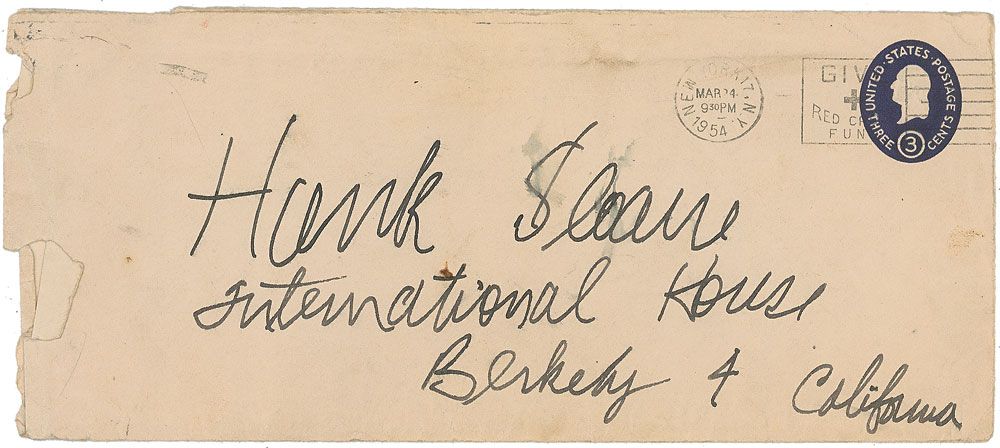 NEW YORK 17, N.Y.
MAR 24
9 30 PM
1954
GIV
RED CR
FUN
UNITED · STATES · POSTAGE
THREE 3 CENTS
Hank Sloane
International House
Berkeley 4 California